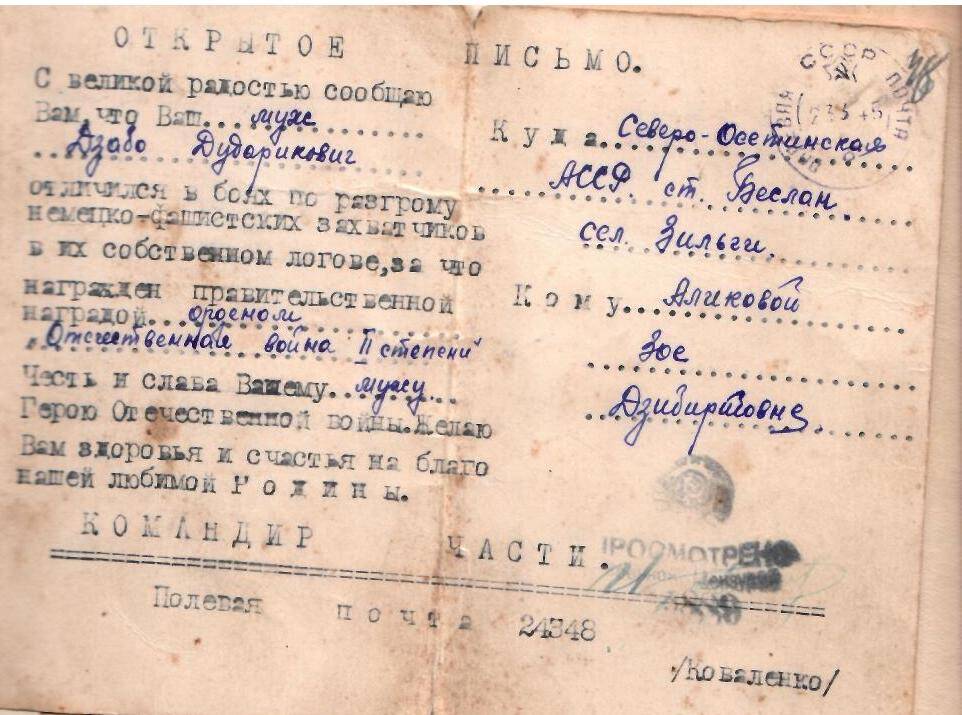 ОТКРЫТОЕ ПИСЬМО.
С великой радостью сообщаю
Вам, что Ваш...мужс
Дзабо Дударикович
отличился в боях по разгрому
немецко-фашистских захватчиков
в их собственном логове,за что
награжден правительственной
наградой...орденом
"Отечественная война II степени"
Честь и слава Вашему..мужу...
Герою Отечественной войны.Желаю
Вам здоровья и счастья на благо
нашей любимой Родины.
КОМАНДИР ЧАСТИ.
Полевая почта 24348
/Коваленко/
Куда..Северо-Осетинская
АССР. ст. Беслан.
сел. Зильги.
Кому..Аликовой
Зое
Дзибиртовне.
СССР ПОЧТА
ПРОСМОТРЕНО
Военной Цензурой